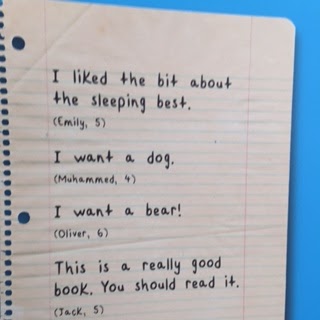 I liked the bit about
the sleeping best.
(Emily, 5)
I want a dog.
(Muhammed, 4)
I want a bear!
(Oliver, 6)
This is a really good
book. You should read it.
(Jack, 5)